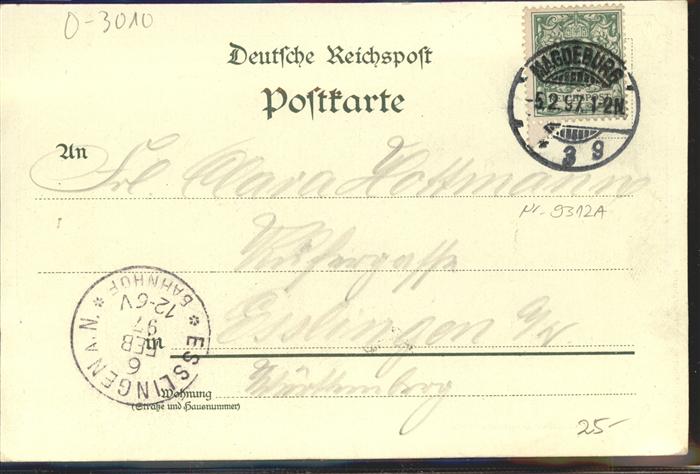 0-3010
Deutsche Reichspost
Postkarte
MAGDEBURG
-5.2.97.1-2N.
* a
3 9
An
Frl. Clara Hoffmann
Nr. 9312A
Esslingen a/N
in
Württemberg
ESSLINGEN A.N. * BAHNHOF *
6
FEB
97
12-6V
Wohnung
(Straße und Hausnummer)
25-